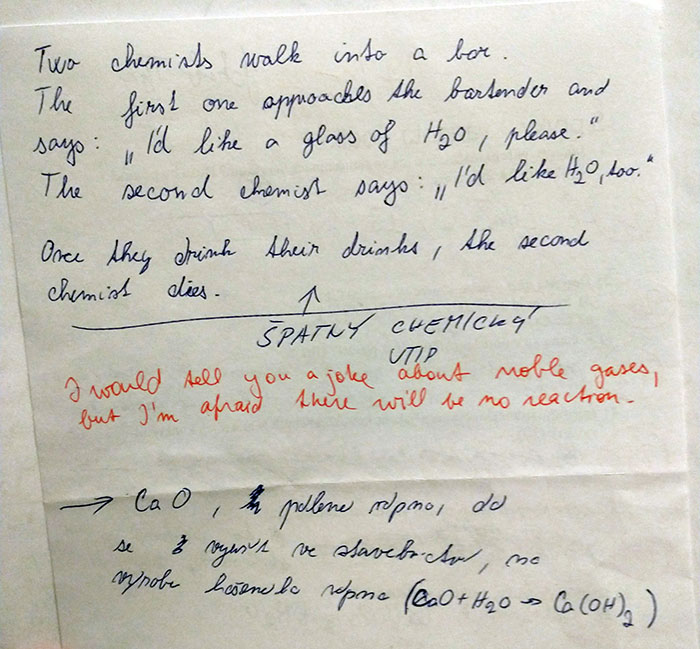 Two chemists walk into a bar.
The first one approaches the bartender and
says: „I'd like a glass of H₂O, please."
The second chemist says: „I'd like H₂O, too."
Once they drink their drinks, the second
chemist dies.
↑
ŠPATNÝ CHEMICKÝ
VTIP
I would tell you a joke about noble gases,
but I'm afraid there will be no reaction.
→ CaO, pálené vápno, dá
se využít ve stavebictví, na
výrobu hašeného vápna (CaO + H₂O → Ca(OH)₂)